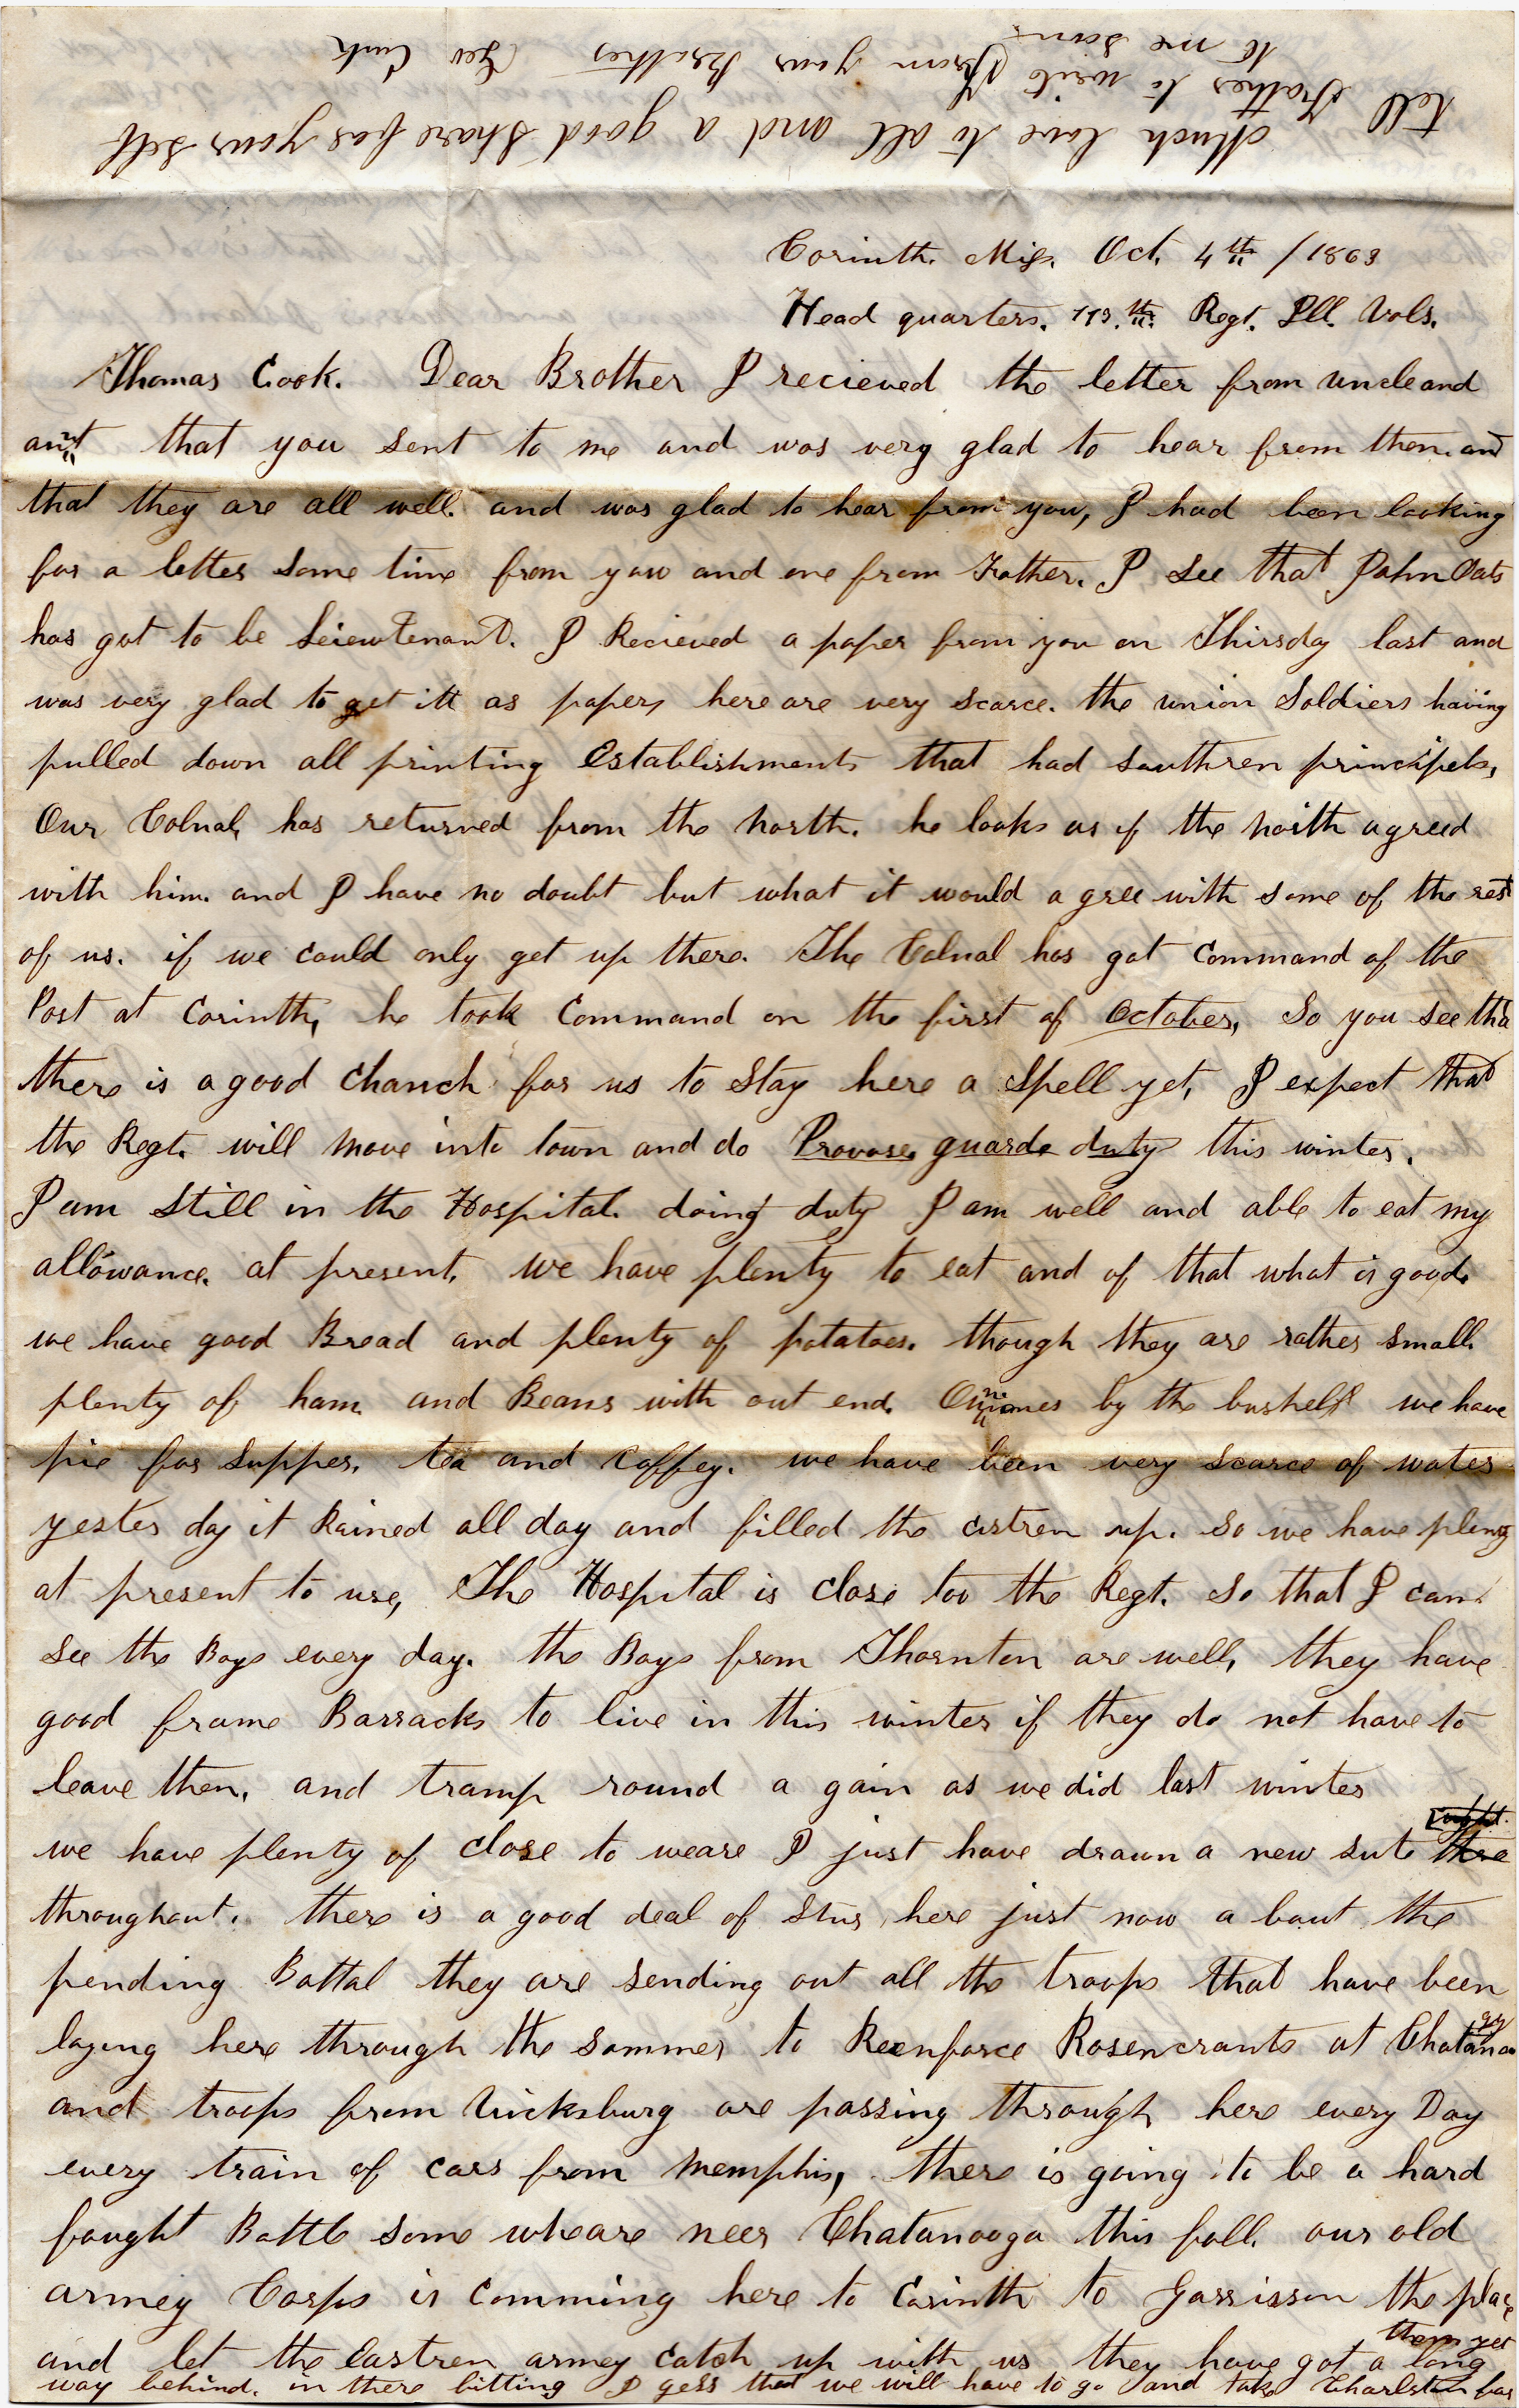 Corinth. Miss. Oct. 4th /1863
Head quarters. 113.th Regt. Ill. Vols.
Thomas Cook. Dear Brother I recieved the letter from uncle and
aunt that you sent to me and was very glad to hear from them. and
that they are all well. and was glad to hear from you, I had been looking
for a letter some time from you and one from Father. I see that John Oats
has got to be Leiewtenant. I Recieved a paper from you on Thirsday last and
was very glad to get itt as papers here are very scarce. the union Soldiers having
pulled down all printing establishments that had southren principels,
Our Colnal, has returned from the north. he looks as if the north agreed
with him. and I have no doubt but what it would a gree with some of the rest
of us. if we could only get up there. The Colnal has got Command of the
Post at Corinth, he took Command on the first of October, So you see tha
there is a good chanch for us to stay here a spell yet, I expect that
the Regt. will move into town and do Provose guards duty this winter.
I am still in the Hospital. doing duty I am well and able to eat my
allowance. at present, we have plenty to eat and of that what is good.
we have good Bread and plenty of potatoes. though they are rather small.
plenty of ham and Beans with out end. by the bushell we have
pie for supper. tea and Coffey. we have been very scarce of water
yester day it Rained all day and filled the cistren up. so we have plenty
at present to use, The Hospital is close too the Regt. so that I can
see the Boys every day. the Boys from Thornton are well, they have
good frame Barracks to live in this winter if they do not have to
leave them, and tramp round a gain as we did last winter
we have plenty of close to weare I just have drawn a new sute
throughout. there is a good deal of stur here just now a bout the
pending Battal they are sending out all the troops that have been
laying here through the sommer to Reenforce Rosencrants at Chatanooga
and troops from Vicksburg are passing through here every Day
every train of cars from Memphis, there is going to be a hard
fought Battle some wheare neer Chatanooga this fall. our old
armey Corps is comming here to Corinth to Garrisson the place
and let the Eastren armey catch up with us they have got a long
way behind. in there fitting I gess that we will have to go and take Charlston for
them yet
Much love to all and a good share for your self
tell Father to write to me soon
From your Brother Geo Cook